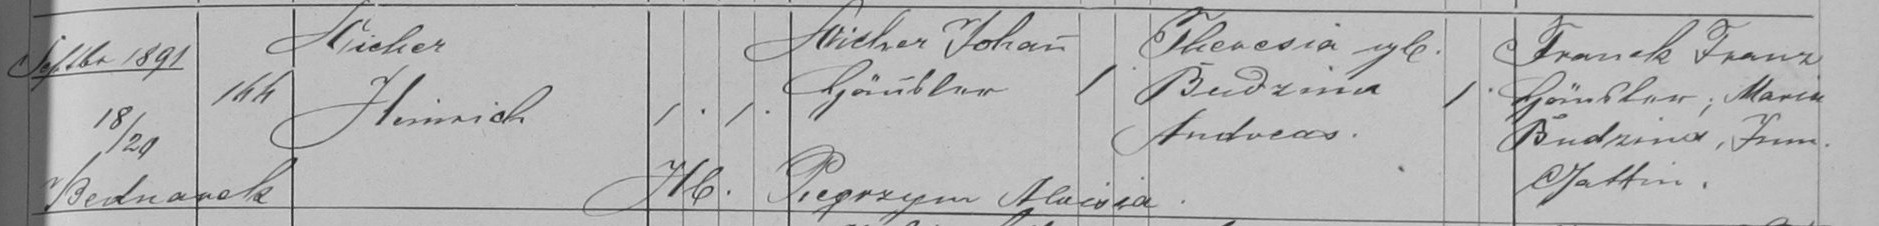 Septbr 1891
18/20
Bednarek
144
Wicher
Heinrich
1 . 1 .
Hb.
Wicher Johan̄
Häusler 1
Piegrzym Aloisia .
Theresia gb.
Budzina 1 .
Andreas .
Franek Franz
Häusler ; Maria
Budzina , Inm.
Gattin .